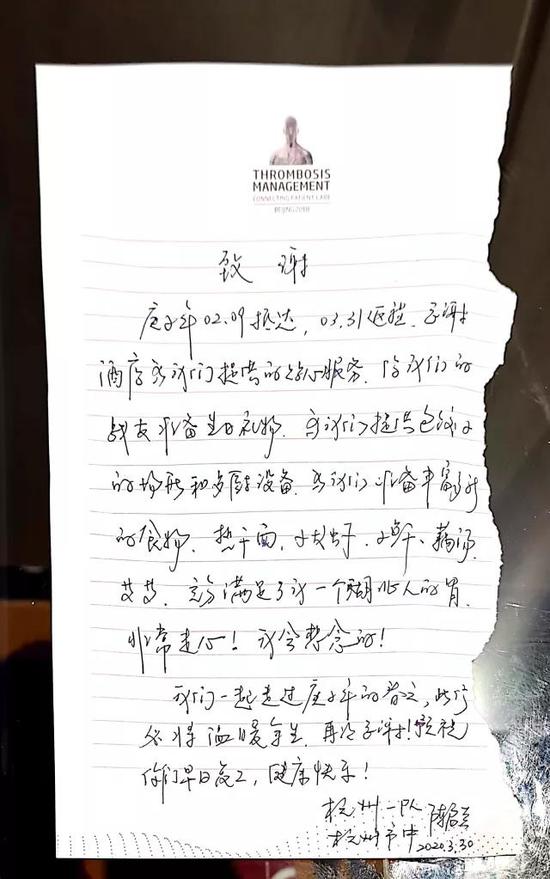 THROMBOSIS
MANAGEMENT
CONNECTING PATIENT CARE
BEIJING 2018
致 谢
庚子年02.09抵达，03.31返程。感谢
酒店为我们提供的贴心服务。给我们的
战友准备生日礼物。为我们提供包饺子
的场所和多厨设备。为我们准备丰富的
的食物。热干面，小龙虾，小笼，藕汤，
艾草，充分满足了我一个湖北人的胃。
非常走心！我会想念的！
我们一起走过庚子年的春天，此行
必将温暖余生。再次感谢！预祝
你们早日复工，健康快乐！
杭州一队
杭州市中 2020.3.30